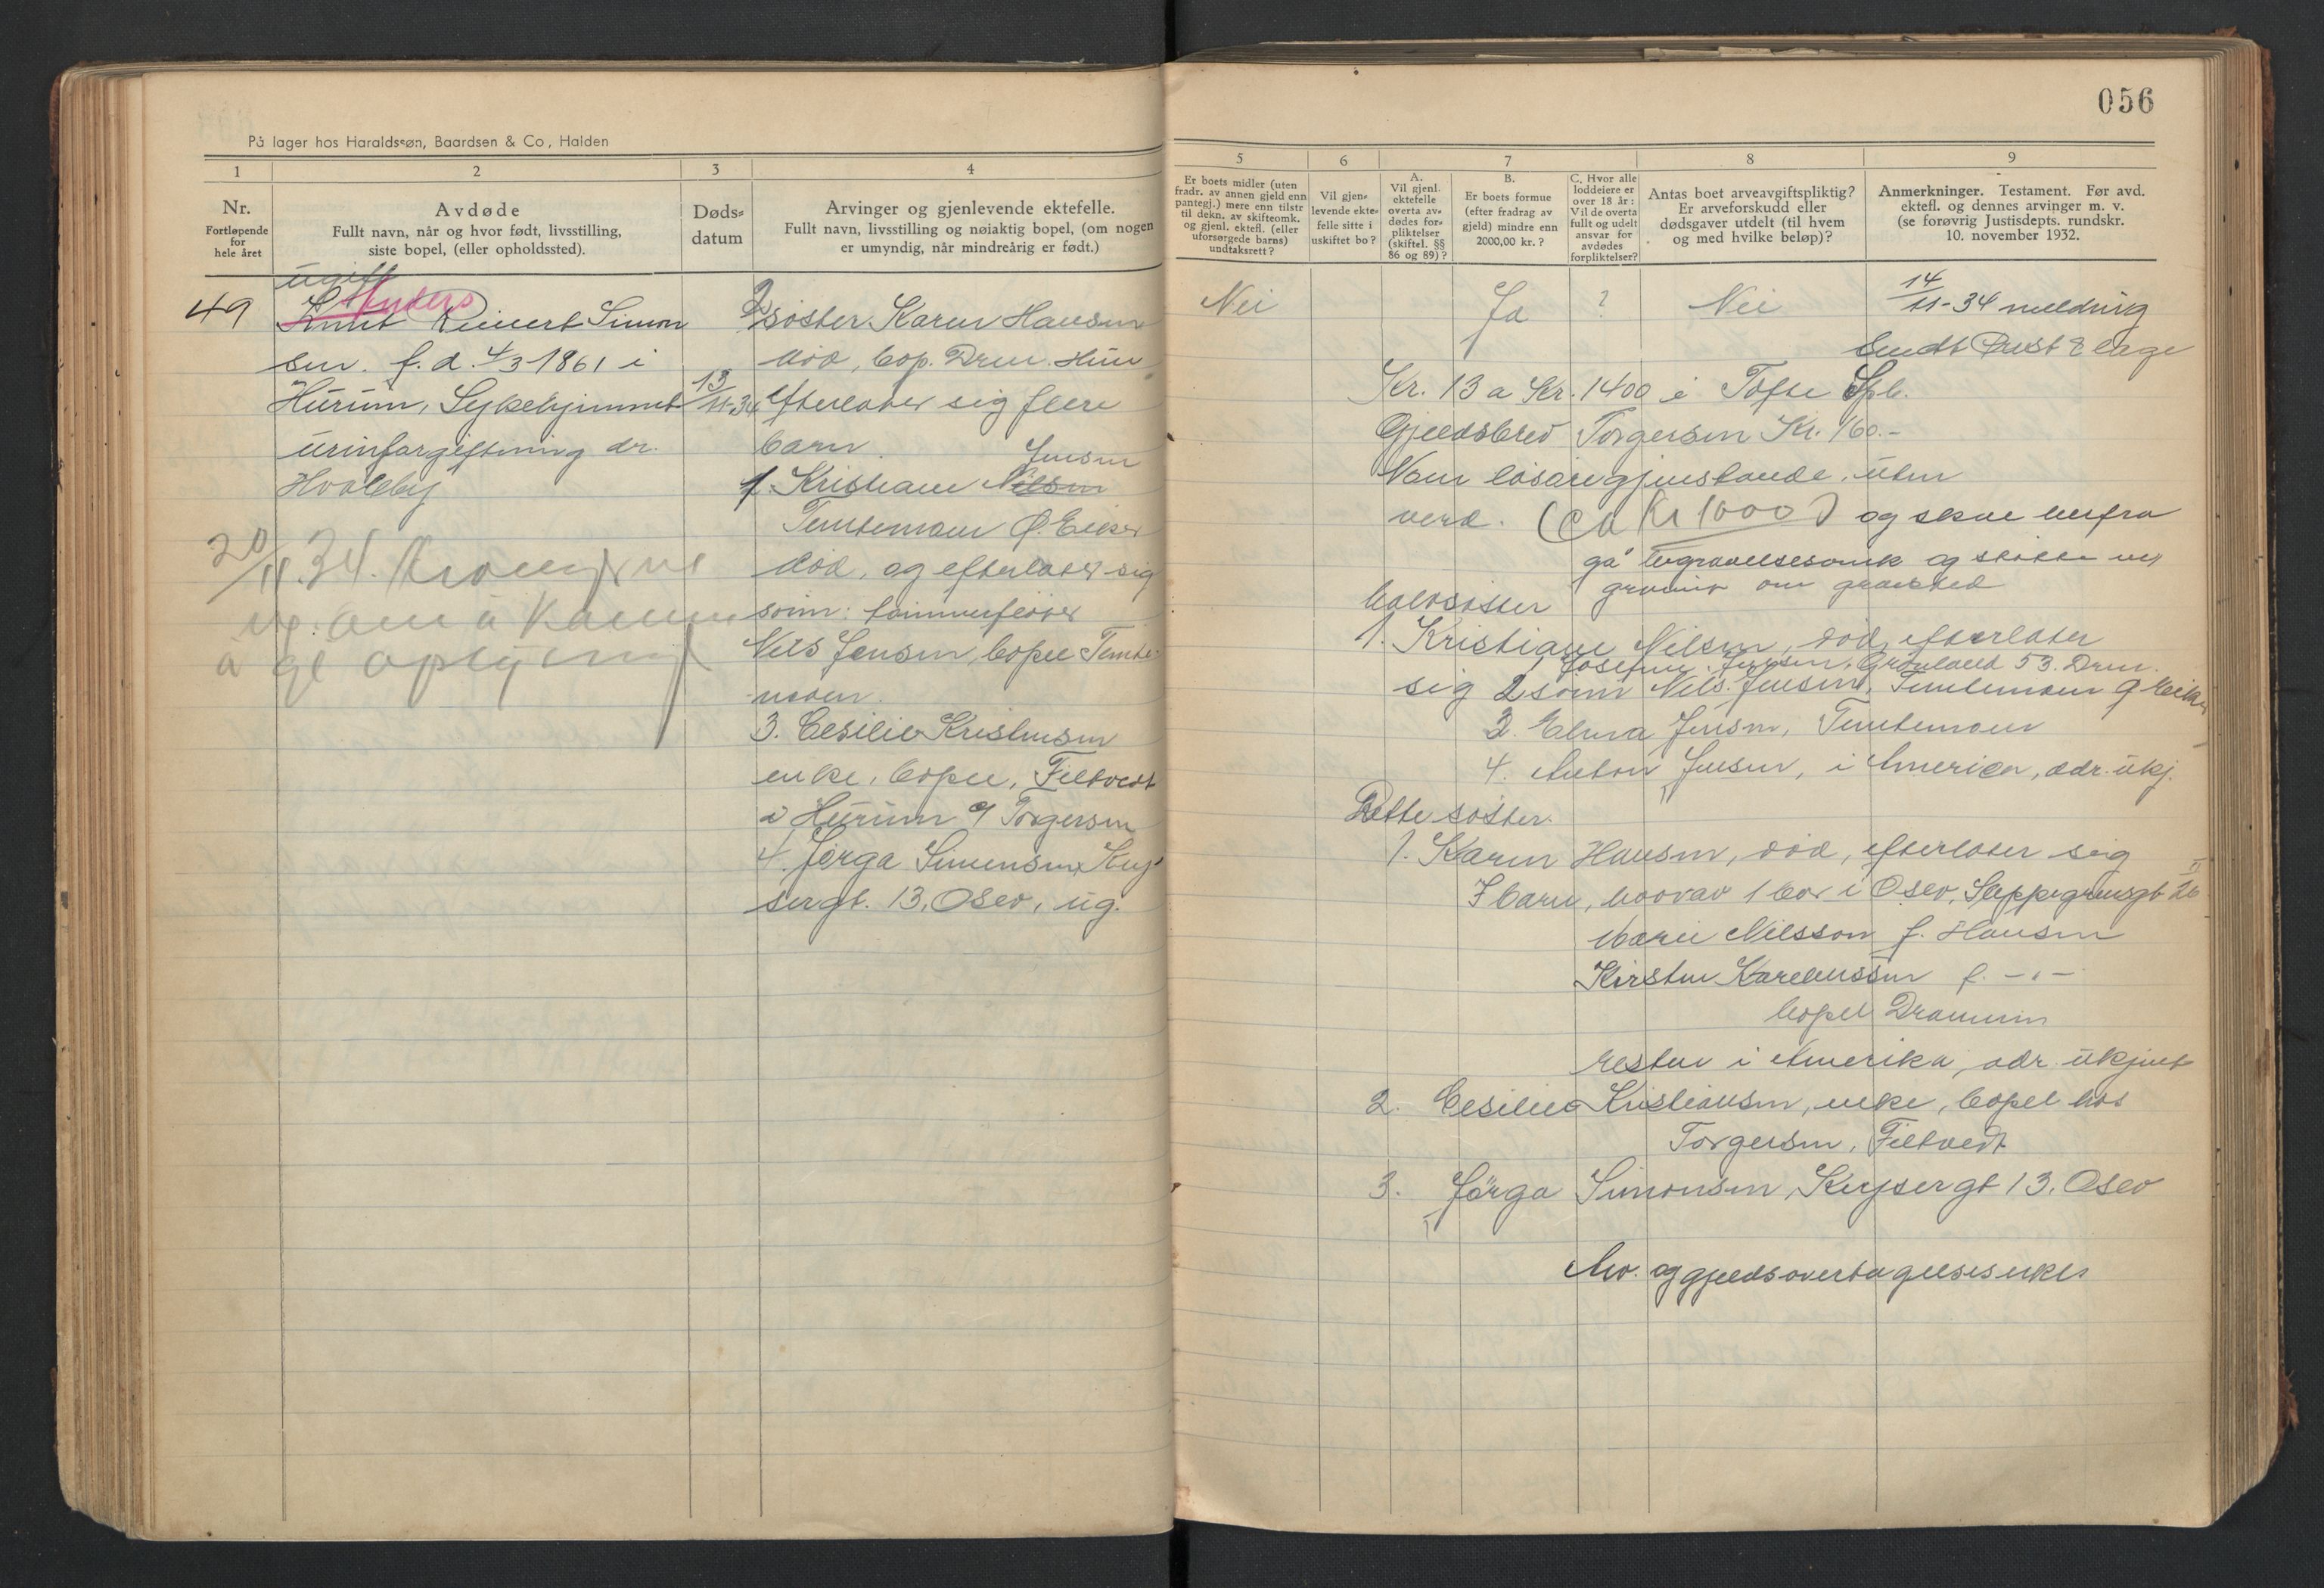 056
På lager hos Haraldssøn, Baardsen & Co, Halden
1
2
3
4
Nr.
Fortløpende
for
hele året
Avdøde
Fullt navn, når og hvor født, livsstilling,
siste bopel, (eller opholdssted).
Døds-
datum
Arvinger og gjenlevende ektefelle.
Fullt navn, livsstilling og nøiaktig bopel, (om nogen
er umyndig, når mindreårig er født.)
ugift
Anders
49
Knut Reinert Simon
sen. f.d. 4/3-1861 i
Hurum, Sykehjemmet
urinforgiftning dr.
Hvalby
20/11.34.
13/11-34
2 søster Karen Hansen
død, bop. Drm. Hun
efterlater sig flere
barn.
Jensen
1. Kristiane Nilsen
Temtemoen Ø. Eiker
død, og efterlater sig
sønn: tømmerfløter
Nils Jensen, bopel Temte-
moen.
3. Cesilie Kristensen
enke, bopel, Filtvedt
i Hurum % Torgersen
4. Jørga Simensen, Key-
sergt. 13, Oslo, ug.
5
6
7
8
9
Er boets midler (uten
fradr. av annen gjeld enn
pantegj.) mere enn tilstr
til dekn. av skifteomk.
og gjenl. ektefl. (eller
uforsørgede barns)
undtaksrett?
Vil gjen-
levende ekte-
felle sitte i
uskiftet bo?
A.
Vil gjenl.
ektefelle
overta av-
dødes for-
pliktelser
(skiftel. §§
86 og 89)?
B.
Er boets formue
(efter fradrag av
gjeld) mindre enn
2000,00 kr.?
C. Hvor alle
loddeiere er
over 18 år:
Vil de overta
fullt og udelt
ansvar for
avdødes
forpliktelser?
Antas boet arveavgiftspliktig?
Er arveforskudd eller
dødsgaver utdelt (til hvem
og med hvilke beløp)?
Anmerkninger. Testament. Før avd.
ektefl. og dennes arvinger m. v.
(se forøvrig Justisdepts. rundskr.
10. november 1932.
Nei
Ja
?
Nei
14/11-34 melding
sendt
Kr. 13 a Kr. 1400 i Tofte Spb.
Gjeldsbrev Torgersen Kr. 160.-
Noen løsøregjenstande, uten
verd. (ca Kr 1000) og skal herfra
gå begravelsesomk og
om gravsted
Halvsøster
1. Kristiane Nilsen, død, efterlater
1 Josefine Jensen, Grønland 53. Drm.
sig 2 sønn Nils Jensen, Temtemoen Ø Eiker
3. Elena Jensen, Temtemoen
4. Anton Jensen, i Amerika, adr. ukj.
Rette søster.
1. Karen Hansen, død, efterlater sig
7 barn, hvorav 1 bor i Oslo, Schleppegrensgt 26 II
Marie Nilsson f. Hansen
Kirsten Karelussen f. -"-
bopel Drammen
resten i Amerika, adr. ukjent
2. Cesilie Kristiansen, enke, bopel hos
Torgersen, Filtvedt
3. Jørga Simonsen, Keysergt 13. Oslo
Arv. og gjeldsovertagelseserkl.